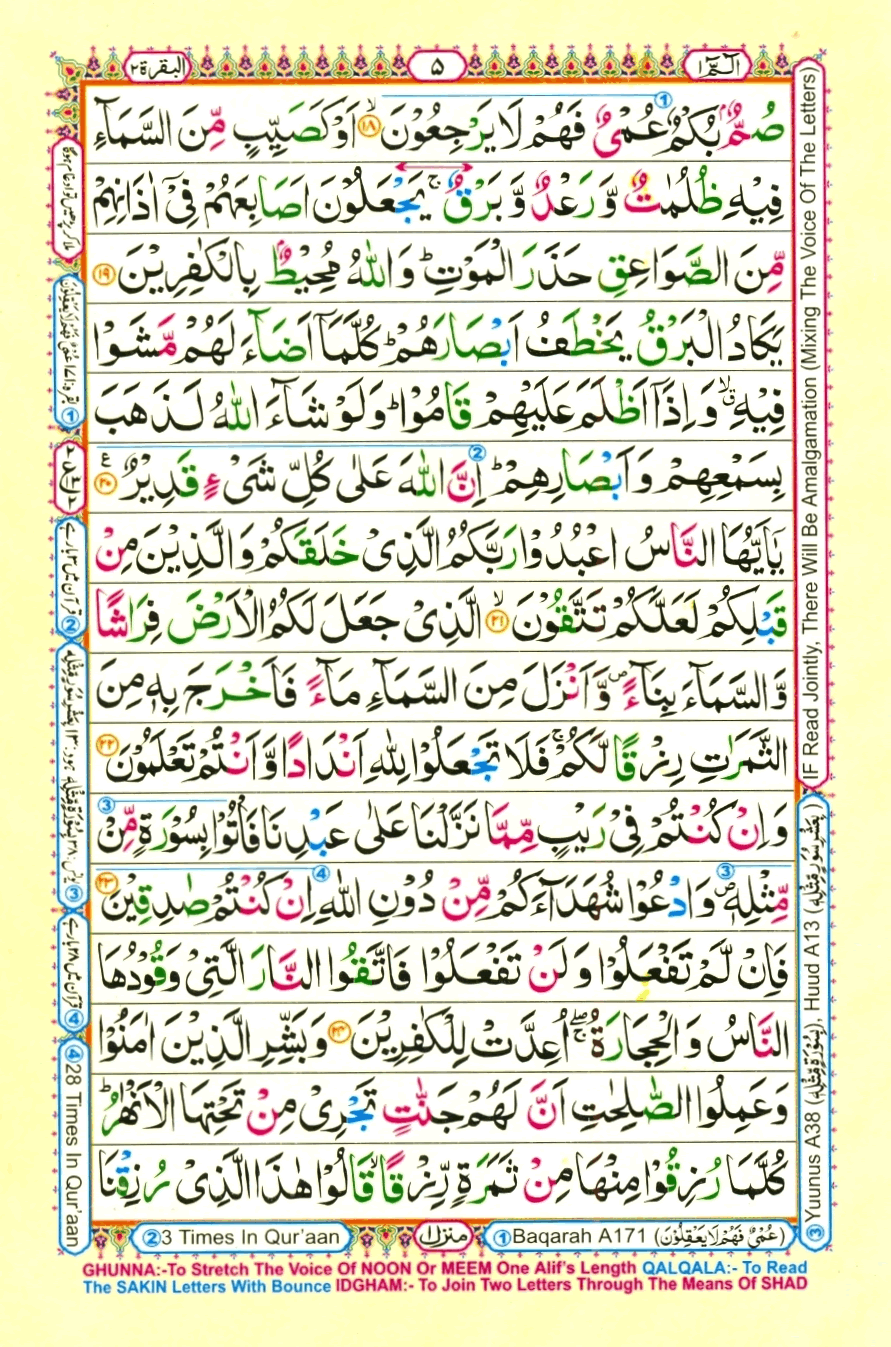 الٓمّٓ ١
۵
البقرة ٢
صُمٌّۢ بُكْمٌ عُمْىٌ فَهُمْ لَا يَرْجِعُوْنَ ۙ﴿۱۸﴾ اَوْ كَصَيِّبٍ مِّنَ السَّمَآءِ
فِيْهِ ظُلُمٰتٌ وَّرَعْدٌ وَّبَرْقٌ ۚ يَجْعَلُوْنَ اَصَابِعَهُمْ فِىْٓ اٰذَانِهِمْ
مِّنَ الصَّوَاعِقِ حَذَرَ الْمَوْتِ ؕ وَاللّٰهُ مُحِيْطٌۢ بِالْكٰفِرِيْنَ ﴿۱۹﴾
يَكَادُ الْبَرْقُ يَخْطَفُ اَبْصَارَهُمْ ؕ كُلَّمَآ اَضَآءَ لَهُمْ مَّشَوْا
فِيْهِ ۙۗ وَاِذَآ اَظْلَمَ عَلَيْهِمْ قَامُوْا ؕ وَلَوْ شَآءَ اللّٰهُ لَذَهَبَ
بِسَمْعِهِمْ وَاَبْصَارِهِمْ ؕ اِنَّ اللّٰهَ عَلٰى كُلِّ شَىْءٍ قَدِيْرٌ ﴿۲۰﴾ ع
يٰٓاَيُّهَا النَّاسُ اعْبُدُوْا رَبَّكُمُ الَّذِىْ خَلَقَكُمْ وَالَّذِيْنَ مِنْ
قَبْلِكُمْ لَعَلَّكُمْ تَتَّقُوْنَ ۙ﴿۲۱﴾ الَّذِىْ جَعَلَ لَكُمُ الْاَرْضَ فِرَاشًا
وَّالسَّمَآءَ بِنَآءً ۪ وَّاَنْزَلَ مِنَ السَّمَآءِ مَآءً فَاَخْرَجَ بِهٖ مِنَ
الثَّمَرٰتِ رِزْقًا لَّكُمْ ۚ فَلَا تَجْعَلُوْا لِلّٰهِ اَنْدَادًا وَّاَنْتُمْ تَعْلَمُوْنَ ﴿۲۲﴾
وَاِنْ كُنْتُمْ فِىْ رَيْبٍ مِّمَّا نَزَّلْنَا عَلٰى عَبْدِنَا فَاْتُوْا بِسُوْرَةٍ مِّنْ
مِّثْلِهٖ ۪ وَادْعُوْا شُهَدَآءَكُمْ مِّنْ دُوْنِ اللّٰهِ اِنْ كُنْتُمْ صٰدِقِيْنَ ﴿۲۳﴾
فَاِنْ لَّمْ تَفْعَلُوْا وَلَنْ تَفْعَلُوْا فَاتَّقُوا النَّارَ الَّتِىْ وَقُوْدُهَا
النَّاسُ وَالْحِجَارَةُ ۖۚ اُعِدَّتْ لِلْكٰفِرِيْنَ ﴿۲۴﴾ وَبَشِّرِ الَّذِيْنَ اٰمَنُوْا
وَعَمِلُوا الصّٰلِحٰتِ اَنَّ لَهُمْ جَنّٰتٍ تَجْرِىْ مِنْ تَحْتِهَا الْاَنْهٰرُ ؕ
كُلَّمَا رُزِقُوْا مِنْهَا مِنْ ثَمَرَةٍ رِّزْقًا ۙ قَالُوْا هٰذَا الَّذِىْ رُزِقْنَا
IF Read Jointly, There Will Be Amalgamation (Mixing The Voice Of The Letters)
③ Yuunus A38 (بِسُوْرَةٍ مِّثْلِهٖ), Huud A13 (بِعَشْرِ سُوَرٍ مِّثْلِهٖ)
② قرآن میں ۳ بار ہے
④ قرآن میں ۲۸ بار ہے
④ 28 Times In Qur'aan
① Baqarah A171 (عُمْىٌ فَهُمْ لَا يَعْقِلُوْنَ)
منزل ١
② 3 Times In Qur'aan
GHUNNA:-To Stretch The Voice Of NOON Or MEEM One Alif's Length QALQALA:- To Read
The SAKIN Letters With Bounce IDGHAM:- To Join Two Letters Through The Means Of SHAD